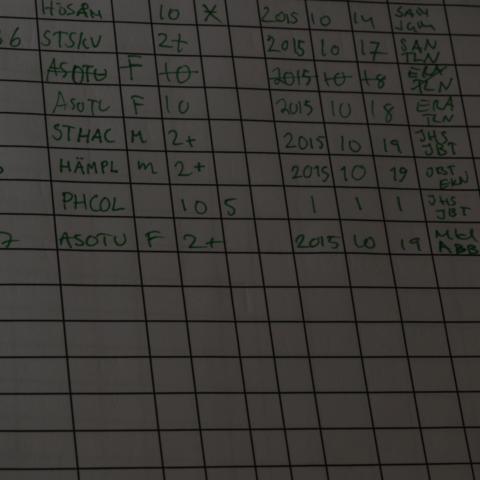 HÖSAM 10 X 2015 10 14 SAN
JGM
6 STSKV 2+ 2015 10 17 SAN
TLN
ASOTU F 10 2015 10 18 ERA
TLN
ASOTU F 10 2015 10 18 ERA
TLN
STHAC M 2+ 2015 10 19 JHS
JBT
HÄMPL M 2+ 2015 10 19 JBT
EKN
PHCOL 10 5 1 1 1 JHS
JBT
7 ASOTU F 2+ 2015 10 19
ABB